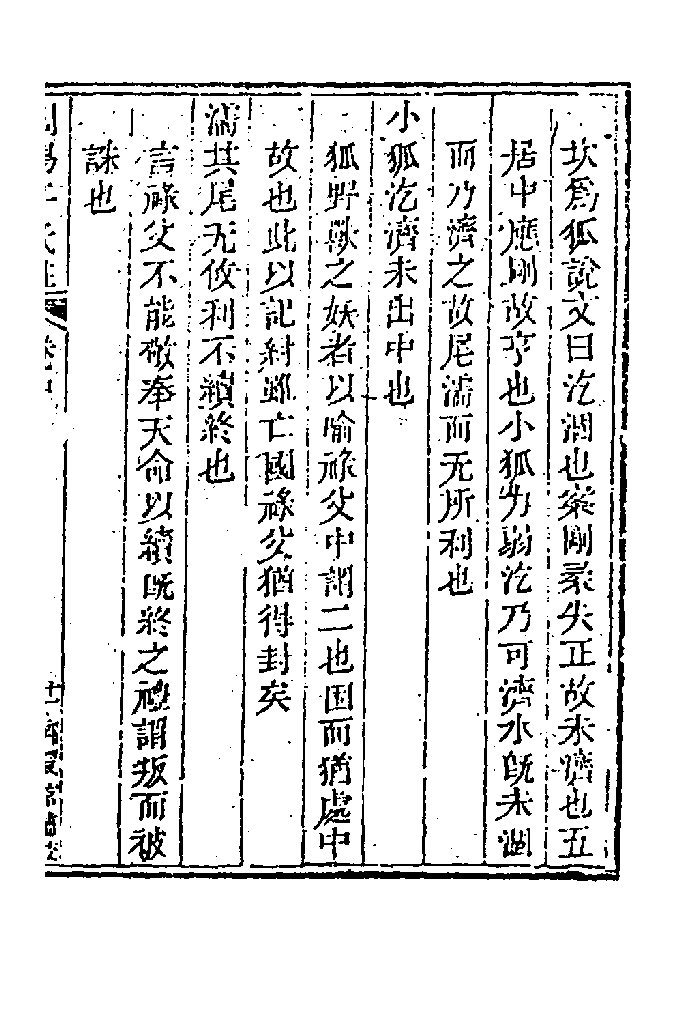 坎爲狐說文曰汔涸也案剛柔失正故未濟也五
居中應剛故亨也小狐力弱汔乃可濟水旣未涸
而乃濟之故尾濡而无所利也
小狐汔濟未出中也
狐野獸之妖者以喻祿父中謂二也困而猶處中
故也此以記紂雖亡國祿父猶得封矣
濡其尾无攸利不續終也
言祿父不能敬奉天命以續旣終之禮謂叛而被
誅也